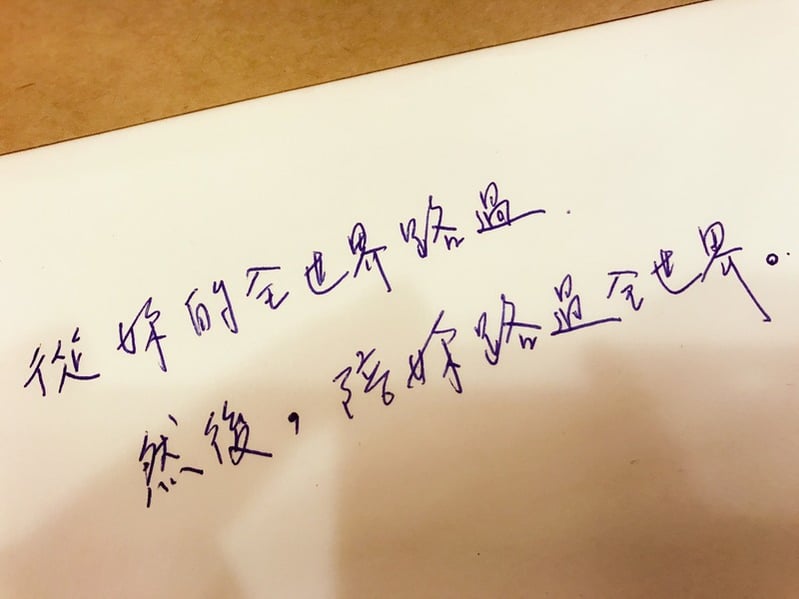 從妳的全世界路過.
然後,陪妳路過全世界。